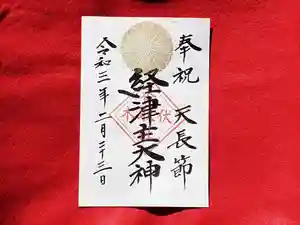 奉祝 天長節
経津主大神
令和三年二月二十三日